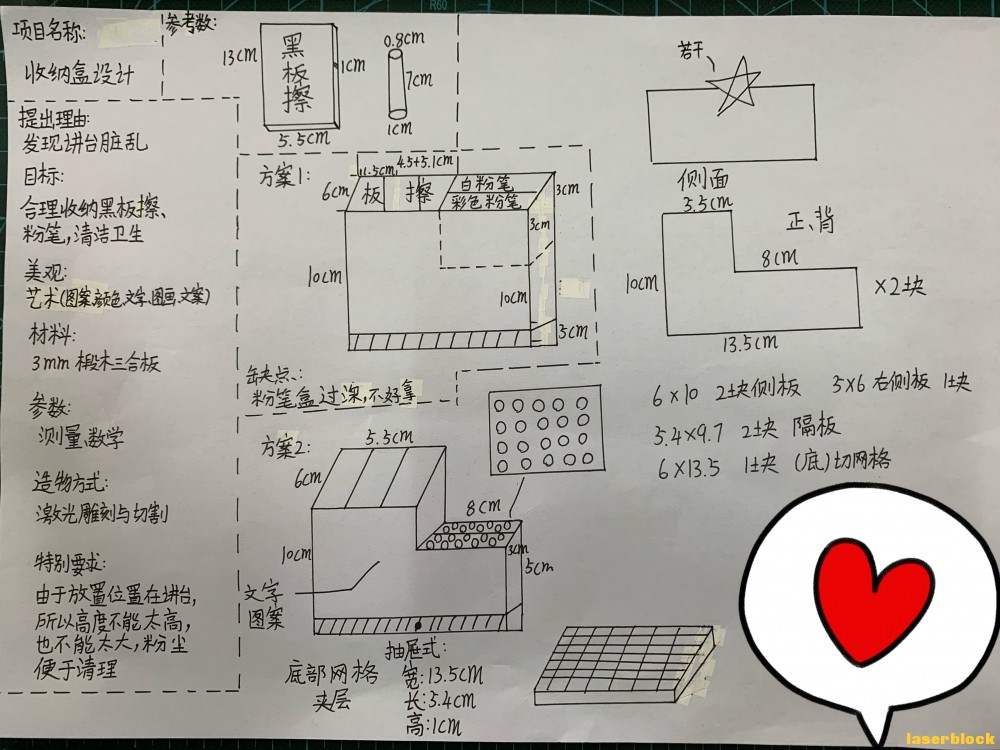 R60
项目名称:
收纳盒设计
参考数:
13cm
黑板擦
1cm
5.5cm
0.8cm
7cm
1cm
提出理由:
发现讲台脏乱
目标:
合理收纳黑板擦、
粉笔,清洁卫生
美观:
艺术(图案、颜色、文字、图画、文案)
材料:
3mm 椴木三合板
参数:
测量、数学
造物方式:
激光雕刻与切割
特别要求:
由于放置位置在讲台,
所以高度不能太高,
也不能太大,粉尘
便于清理
方案1:
4.5+5.1cm
6cm
板 擦
白粉笔
彩色粉笔
3cm
3cm
10cm
10cm
缺点:
粉笔盒过深,不好拿
方案2:
5.5cm
6cm
8cm
10cm
3cm
5cm
文字
图案
底部网格
夹层
抽屉式:
宽:13.5cm
长:5.4cm
高:1cm
若干
侧面
5.5cm
正、背
8cm
10cm
×2块
13.5cm
6×10 2块侧板 5×6 右侧板 1块
5.4×9.7 2块 隔板
6×13.5 1块 (底)切网格
laserblock